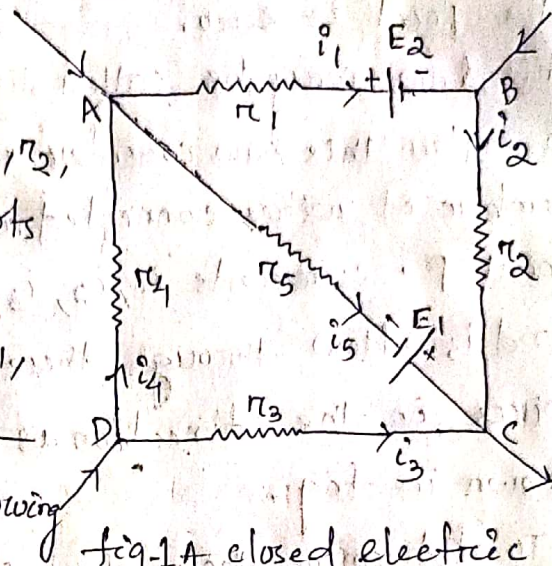 i₁ E₂
+ -
A r₁ B
, r₂, i₂
ots
r₄ r₅ r₂
i₅ - E₁
+
i₄ r₃
D i₃ C
owing
fig-1 A closed electric